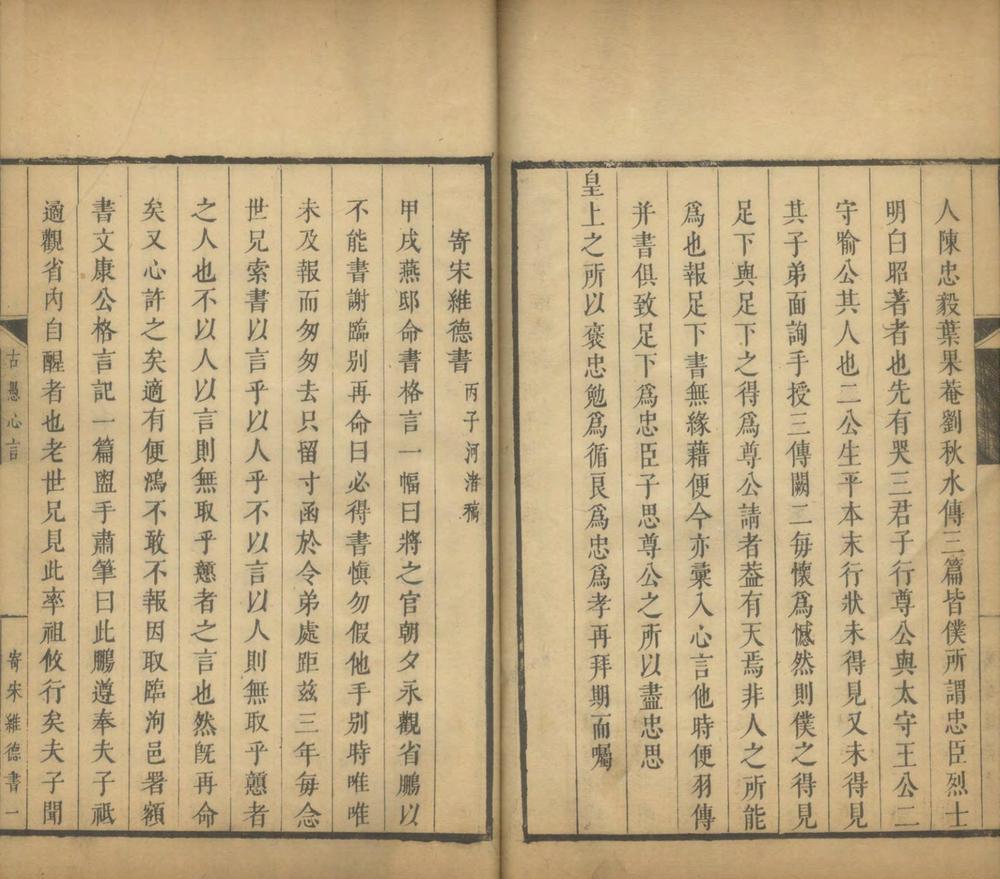 人陳忠毅葉果菴劉秋水傳三篇皆僕所謂忠臣烈士
明白昭著者也先有哭三君子行尊公與太守王公二
守喻公其人也二公生平本末行狀未得見又未得見
其子弟面詢手授三傳闕二每懷爲憾然則僕之得見
足下與足下之得爲尊公請者葢有天焉非人之所能
爲也報足下書無緣藉便今亦彙入心言他時便羽傳
并書俱致足下爲忠臣子思尊公之所以盡忠思
皇上之所以褒忠勉爲循良爲忠爲孝再拜期而囑
寄宋維德書 丙子河渚稿
甲戌燕邸命書格言一幅曰將之官朝夕永觀省鵬以
不能書謝臨別再命曰必得書愼勿假他手別時唯唯
未及報而匆匆去只留寸函於令弟處距茲三年每念
世兄索書以言乎以人乎不以言以人則無取乎戇者
之人也不以人以言則無取乎戇者之言也然旣再命
矣又心許之矣適有便鴻不敢不報因取臨洵邑署額
書文康公格言記一篇盥手肅筆曰此鵬遵奉夫子祗
遹觀省內自醒者也老世兄見此率祖攸行矣夫子聞
古愚心言
寄宋維德書 一